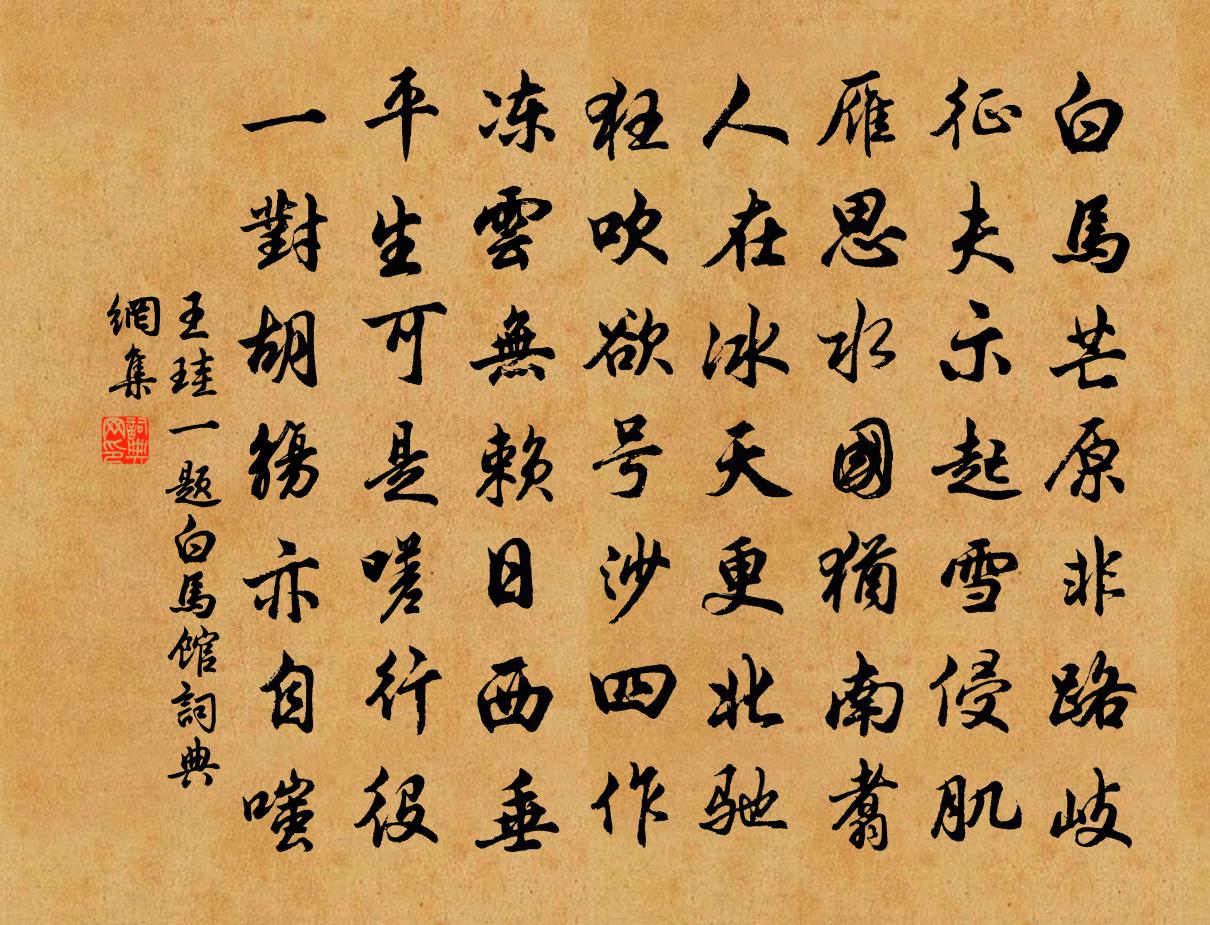 白馬芒原非路岐
征夫示起雪侵肌
雁思水國猶南翥
人在冰天更北馳
狂吹欲号沙四作
凍雲無賴日西垂
平生可是嗟行役
一對胡觴亦自嗤
王珪一題白馬館詞典
網集
詞典
网印